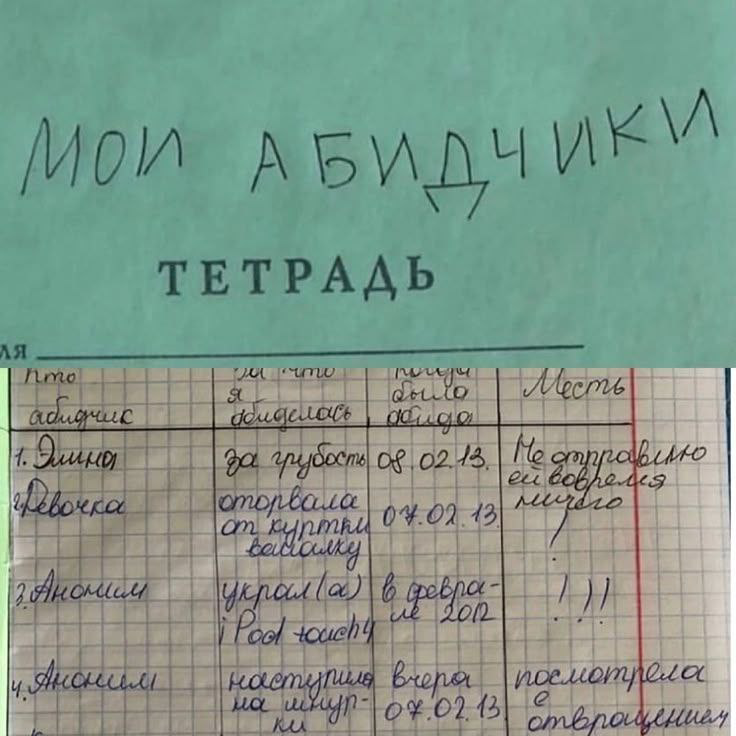 МОИ АБИДЧИКИ
ТЕТРАДЬ
ля
Кто
абидчик
за что
я
абиделась
когда
было
абида
Месть
1. Элина
за грубость
08.02.13.
Не отправлю
ей вовремя
ничего
2. Девочка
оторвала
от куртки
07.02.13.
!
3. Аноним
украл(а)
iPod touch 4
в февра-
ле 2012
!!!
4. Аноним
наступила
на шнур-
ки
вчера
07.02.13
посмотрела
с
отвращением